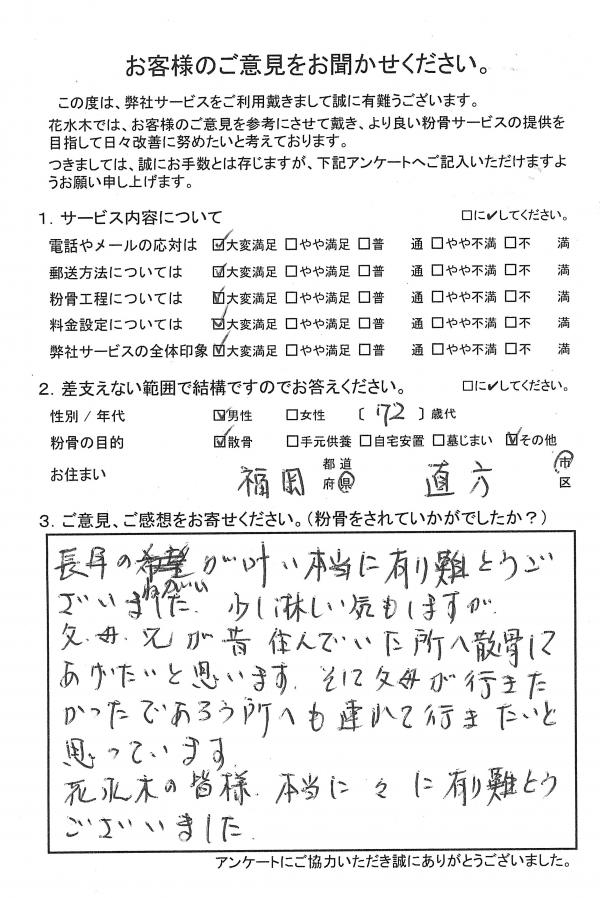 お客様のご意見をお聞かせください。
この度は、弊社サービスをご利用戴きまして誠に有難うございます。
花水木では、お客様のご意見を参考にさせて戴き、より良い粉骨サービスの提供を
目指して日々改善に努めたいと考えております。
つきましては、誠にお手数とは存じますが、下記アンケートへご記入いただけますよ
うお願い申し上げます。
1. サービス内容について □に✔してください。
電話やメールの応対は ☑大変満足 □やや満足 □普 通 □やや不満 □不 満
郵送方法については ☑大変満足 □やや満足 □普 通 □やや不満 □不 満
粉骨工程については ☑大変満足 □やや満足 □普 通 □やや不満 □不 満
料金設定については ☑大変満足 □やや満足 □普 通 □やや不満 □不 満
弊社サービスの全体印象 ☑大変満足 □やや満足 □普 通 □やや不満 □不 満
2. 差支えない範囲で結構ですのでお答えください。 □に✔してください。
性別 / 年代 ☑男性 □女性 〔 72 〕歳代
粉骨の目的 ☑散骨 □手元供養 □自宅安置 □墓じまい ☑その他
お住まい 福岡 都道府県 直方 市区
3. ご意見、ご感想をお寄せください。(粉骨をされていかがでしたか?)
長年の希望が叶い本当に有り難とうご
ねがい
ざいました。少し淋しい気もしますが
父、母、兄が昔住んでいた所へ散骨して
あげたいと思います。そして父母が行きた
かったであろう所へも連れて行きたいと
思っています
花水木の皆様、本当に々に有り難とう
ございました。
アンケートにご協力いただき誠にありがとうございました。